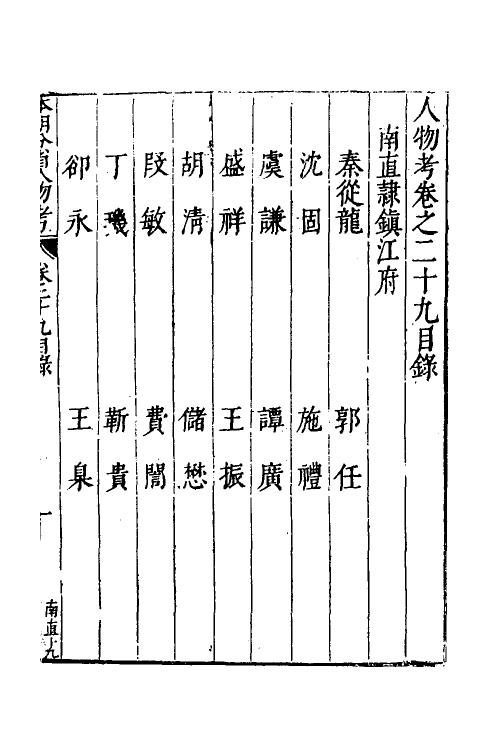 人物考卷之二十九目錄
南直隷鎮江府
秦從龍 郭任
沈固 施禮
虞謙 譚廣
盛祥 王振
胡清 儲懋
段敏 費誾
丁璣 靳貴
卻永 王臬
本朝分省人物考 卷二十九目錄 一 南直九